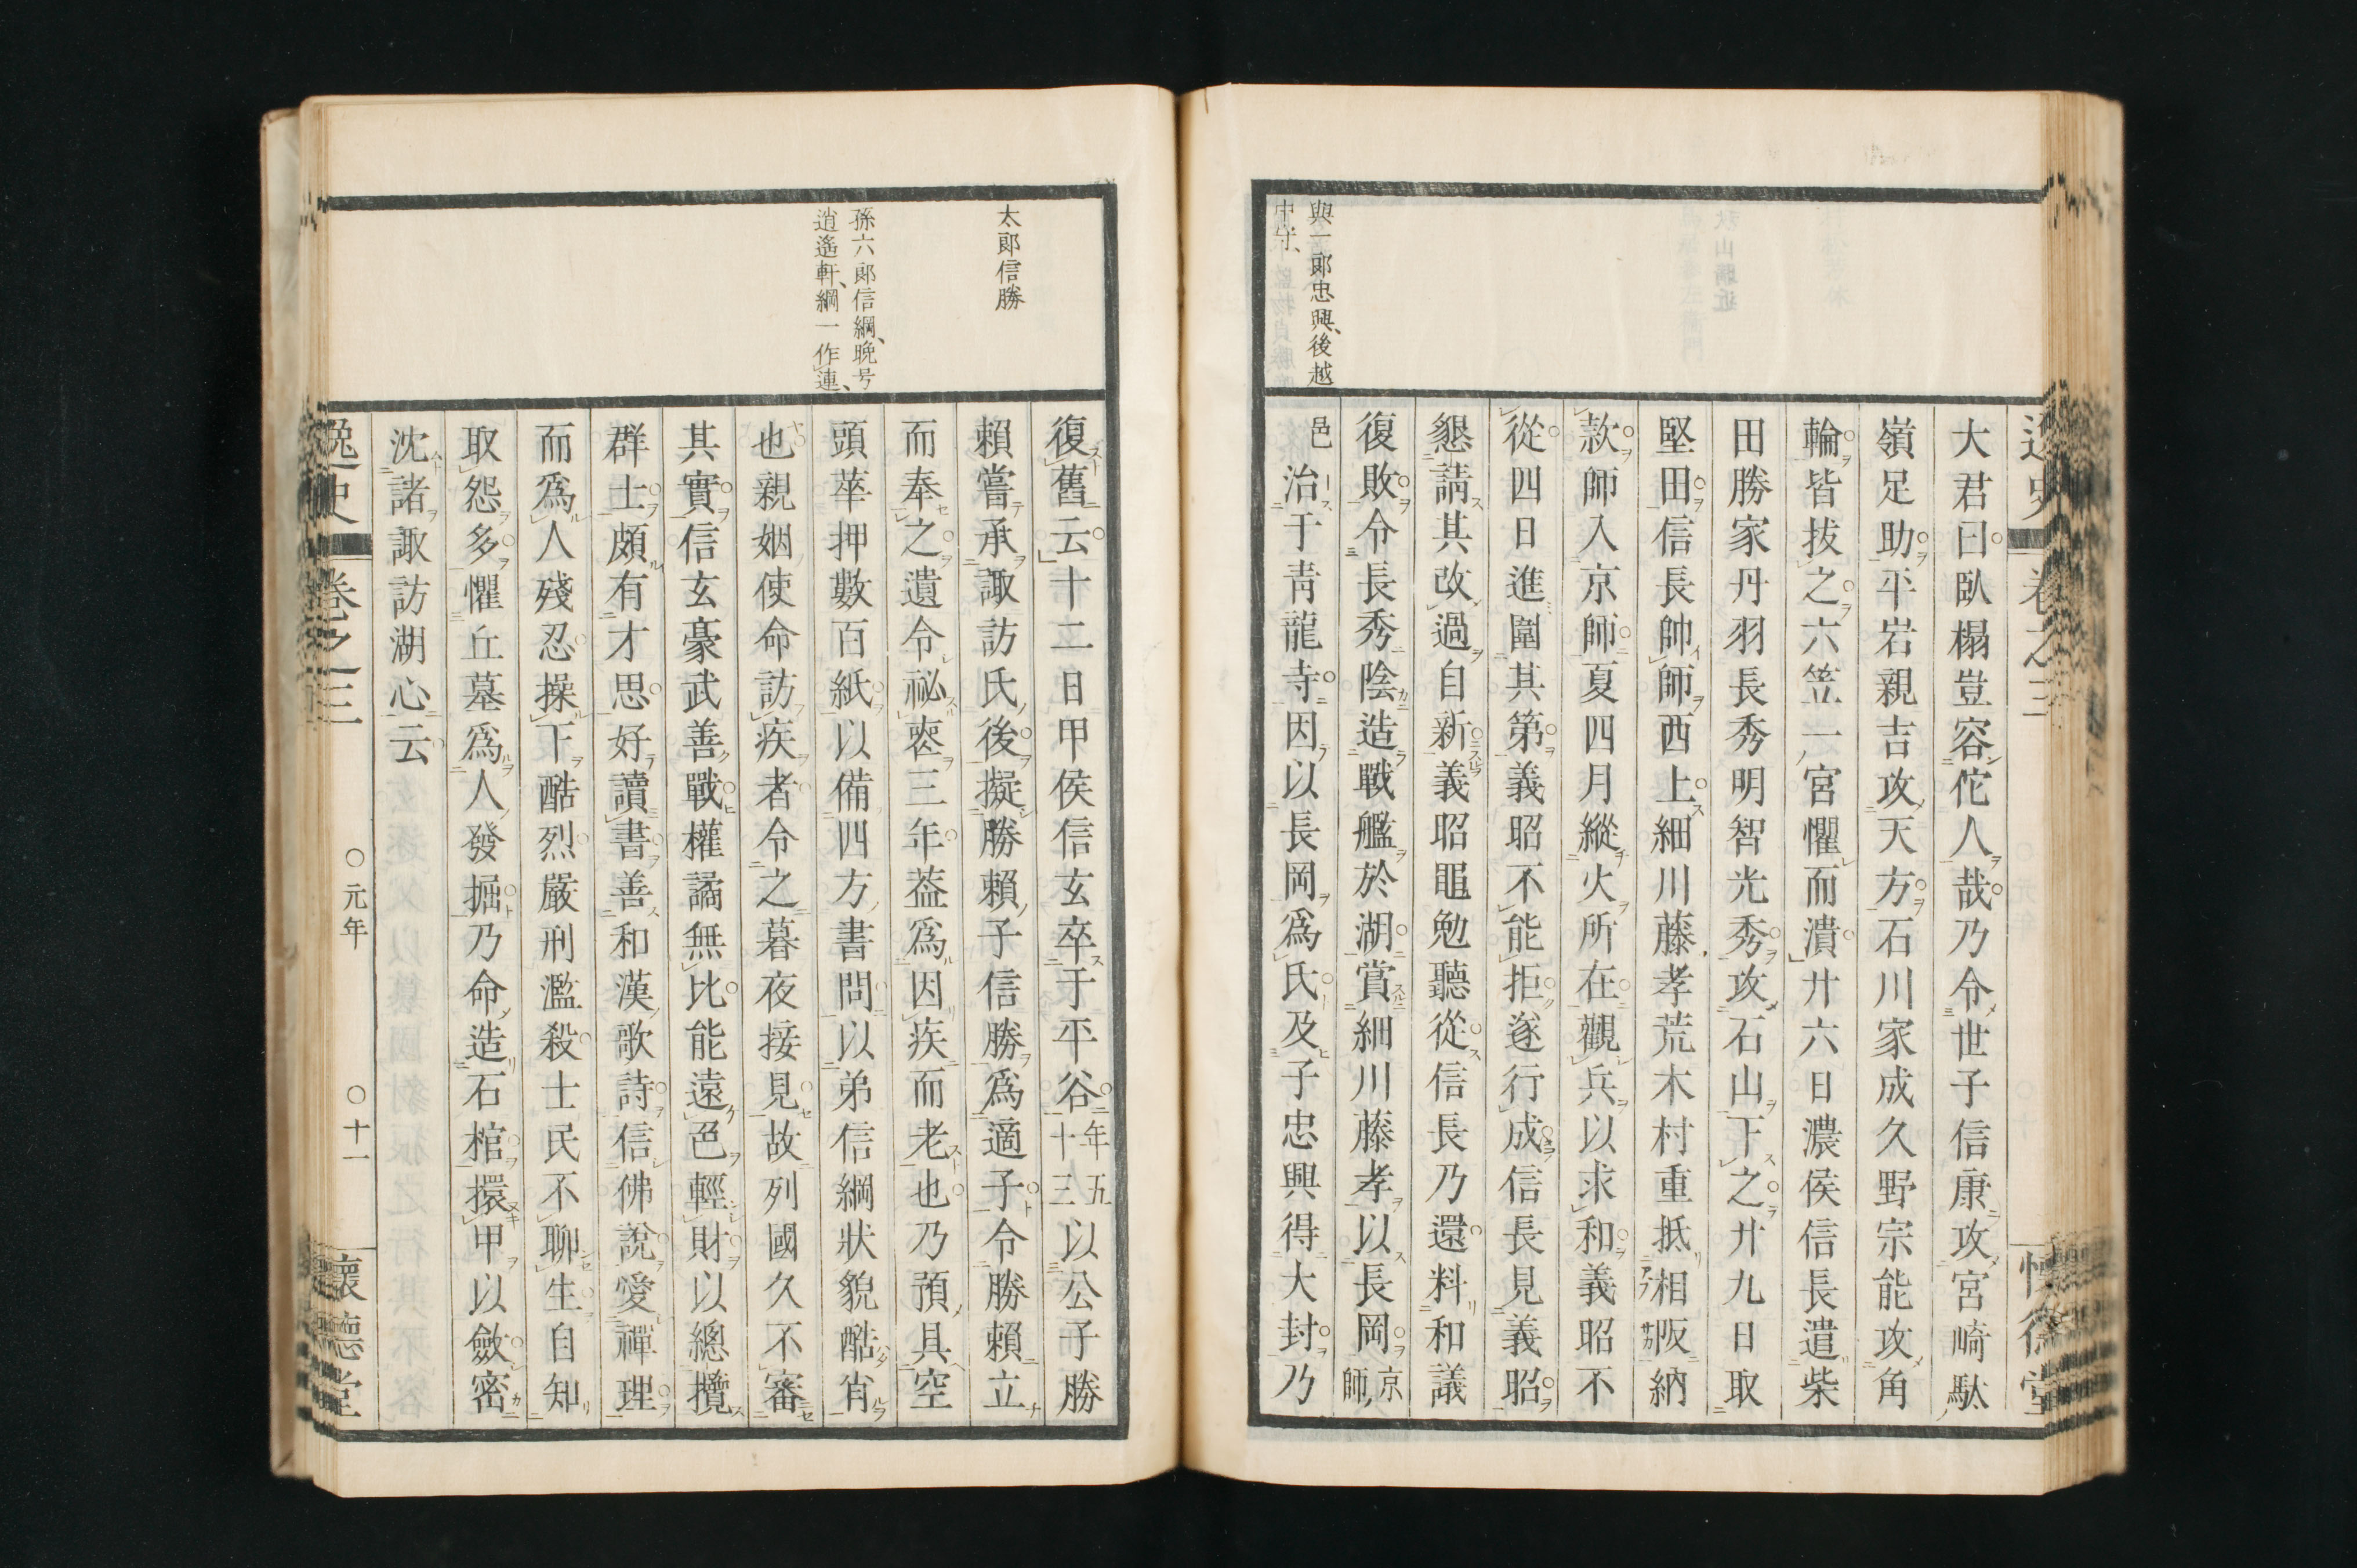 逸史
卷之三
懷德堂
大君曰臥榻豈容佗人哉乃令世子信康攻宮崎馱
嶺足助平岩親吉攻天方石川家成久野宗能攻角
輪皆拔之六笠一宮懼而潰廾六日濃侯信長遣柴
田勝家丹羽長秀明智光秀攻石山下之廾九日取
堅田信長帥師西上細川藤孝荒木村重抵相阪納
款師入京師夏四月縱火所在觀兵以求和義昭不
從四日進圍其第義昭不能拒遂行成信長見義昭
懇請其改過自新義昭黽勉聽從信長乃還料和議
復敗令長秀陰造戰艦於湖賞細川藤孝以長岡京師
邑治于靑龍寺因以長岡爲氏及子忠興得大封乃
與一郞忠興、後越
中守、
太郞信勝
孫六郞信綱、晚号
逍遙軒、綱一作連、
復舊云十二日甲侯信玄卒于平谷年五十三以公子勝
賴嘗承諏訪氏後擬勝賴子信勝爲適子令勝賴立
而奉之遺令祕喪三年葢爲因疾而老也乃預具空
頭華押數百紙以備四方書問以弟信綱狀貌酷肖
也親姻使命訪疾者令之暮夜接見故列國久不審
其實信玄豪武善戰權譎無比能遠色輕財以總攬
群士頗有才思好讀書善和漢歌詩信佛說愛禪理
而爲人殘忍操下酷烈嚴刑濫殺士民不聊生自知
取怨多懼丘墓爲人發掘乃命造石棺擐甲以斂密
沈諸諏訪湖心云
逸史
卷之三
○元年
○十一
懷德堂